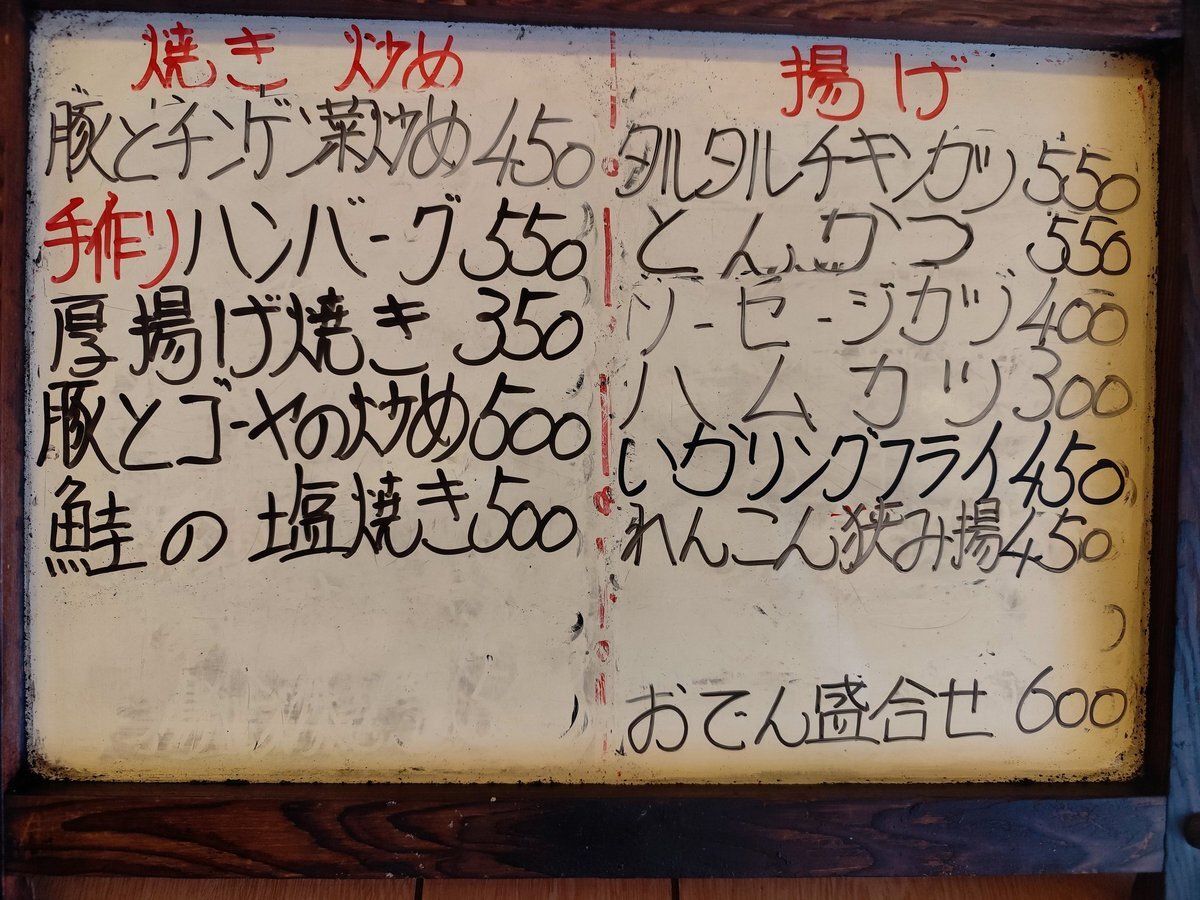 焼き 炒め
豚とチンゲン菜炒め 450
手作りハンバーグ 550
厚揚げ焼き 350
豚とゴーヤの炒め 500
鮭の塩焼き 500
揚げ
タルタルチキンカツ 550
とんかつ 550
ソーセージカツ 400
ハムカツ 300
いかリングフライ 450
れんこん狭み揚 450
おでん盛合せ 600